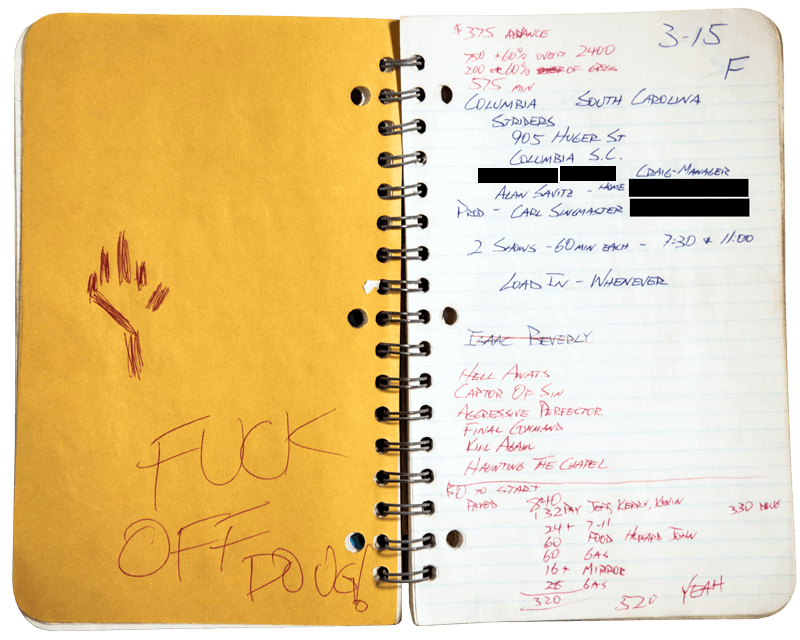 FUCK
OFF
DOUG!
$375 ADVANCE
750 + 60% OVER 2400
200 or 60% OF GROSS
575 MIN
3-15
F
COLUMBIA SOUTH CAROLINA
STRIDERS
905 HUGER ST
COLUMBIA S.C.
CRAIG-MANAGER
ALAN SAVITZ - HOME
PROD - CARL SINGMASTER
2 SHOWS - 60 MIN EACH - 7:30 & 11:00
LOAD IN - WHENEVER
ISAAC BEVERLY
HELL AWATS
CAPTOR OF SIN
AGGRESSIVE PERFECTOR
FINAL COMMAND
KILL AGAIN
HAUNTING THE CHAPEL
50 TO START
PAYED 840
132 PAY JEFF, KERRY, KEVIN
330 DOUG
24+ 7-11
60 FOOD HOWARD JOHN
60 GAS
16+ MIRROR
28 GAS
320
520 YEAH